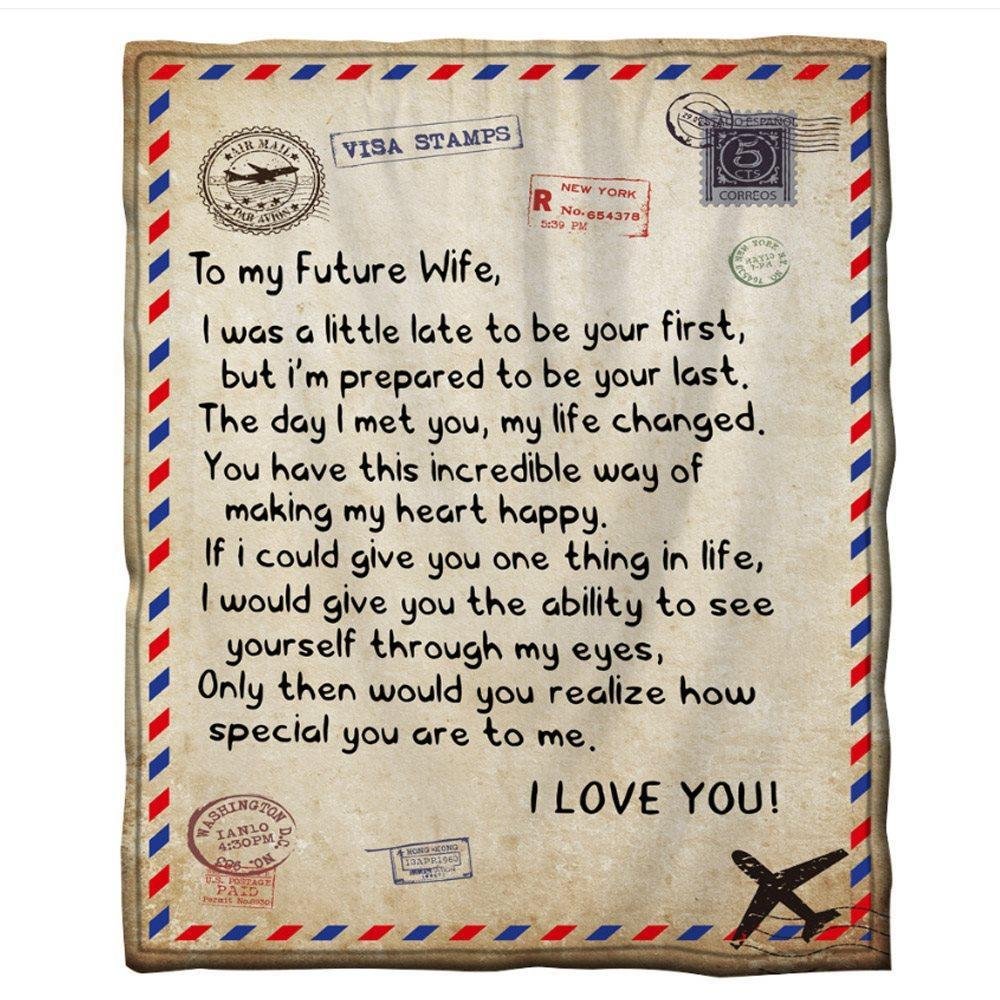 AIR MAIL
PAR AVION
VISA STAMPS
NEW YORK
R No. 654378
5:39 PM
5
CTS
CORREOS
To my Future Wife,
I was a little late to be your first,
but i'm prepared to be your last.
The day I met you, my life changed.
You have this incredible way of
making my heart happy.
If i could give you one thing in life,
I would give you the ability to see
yourself through my eyes,
Only then would you realize how
special you are to me.
I LOVE YOU!
WASHINGTON D.C.
IAN10
4:30PM
U.S. POSTAGE
PAID
Permit No.
HONG-KONG
13APR1960